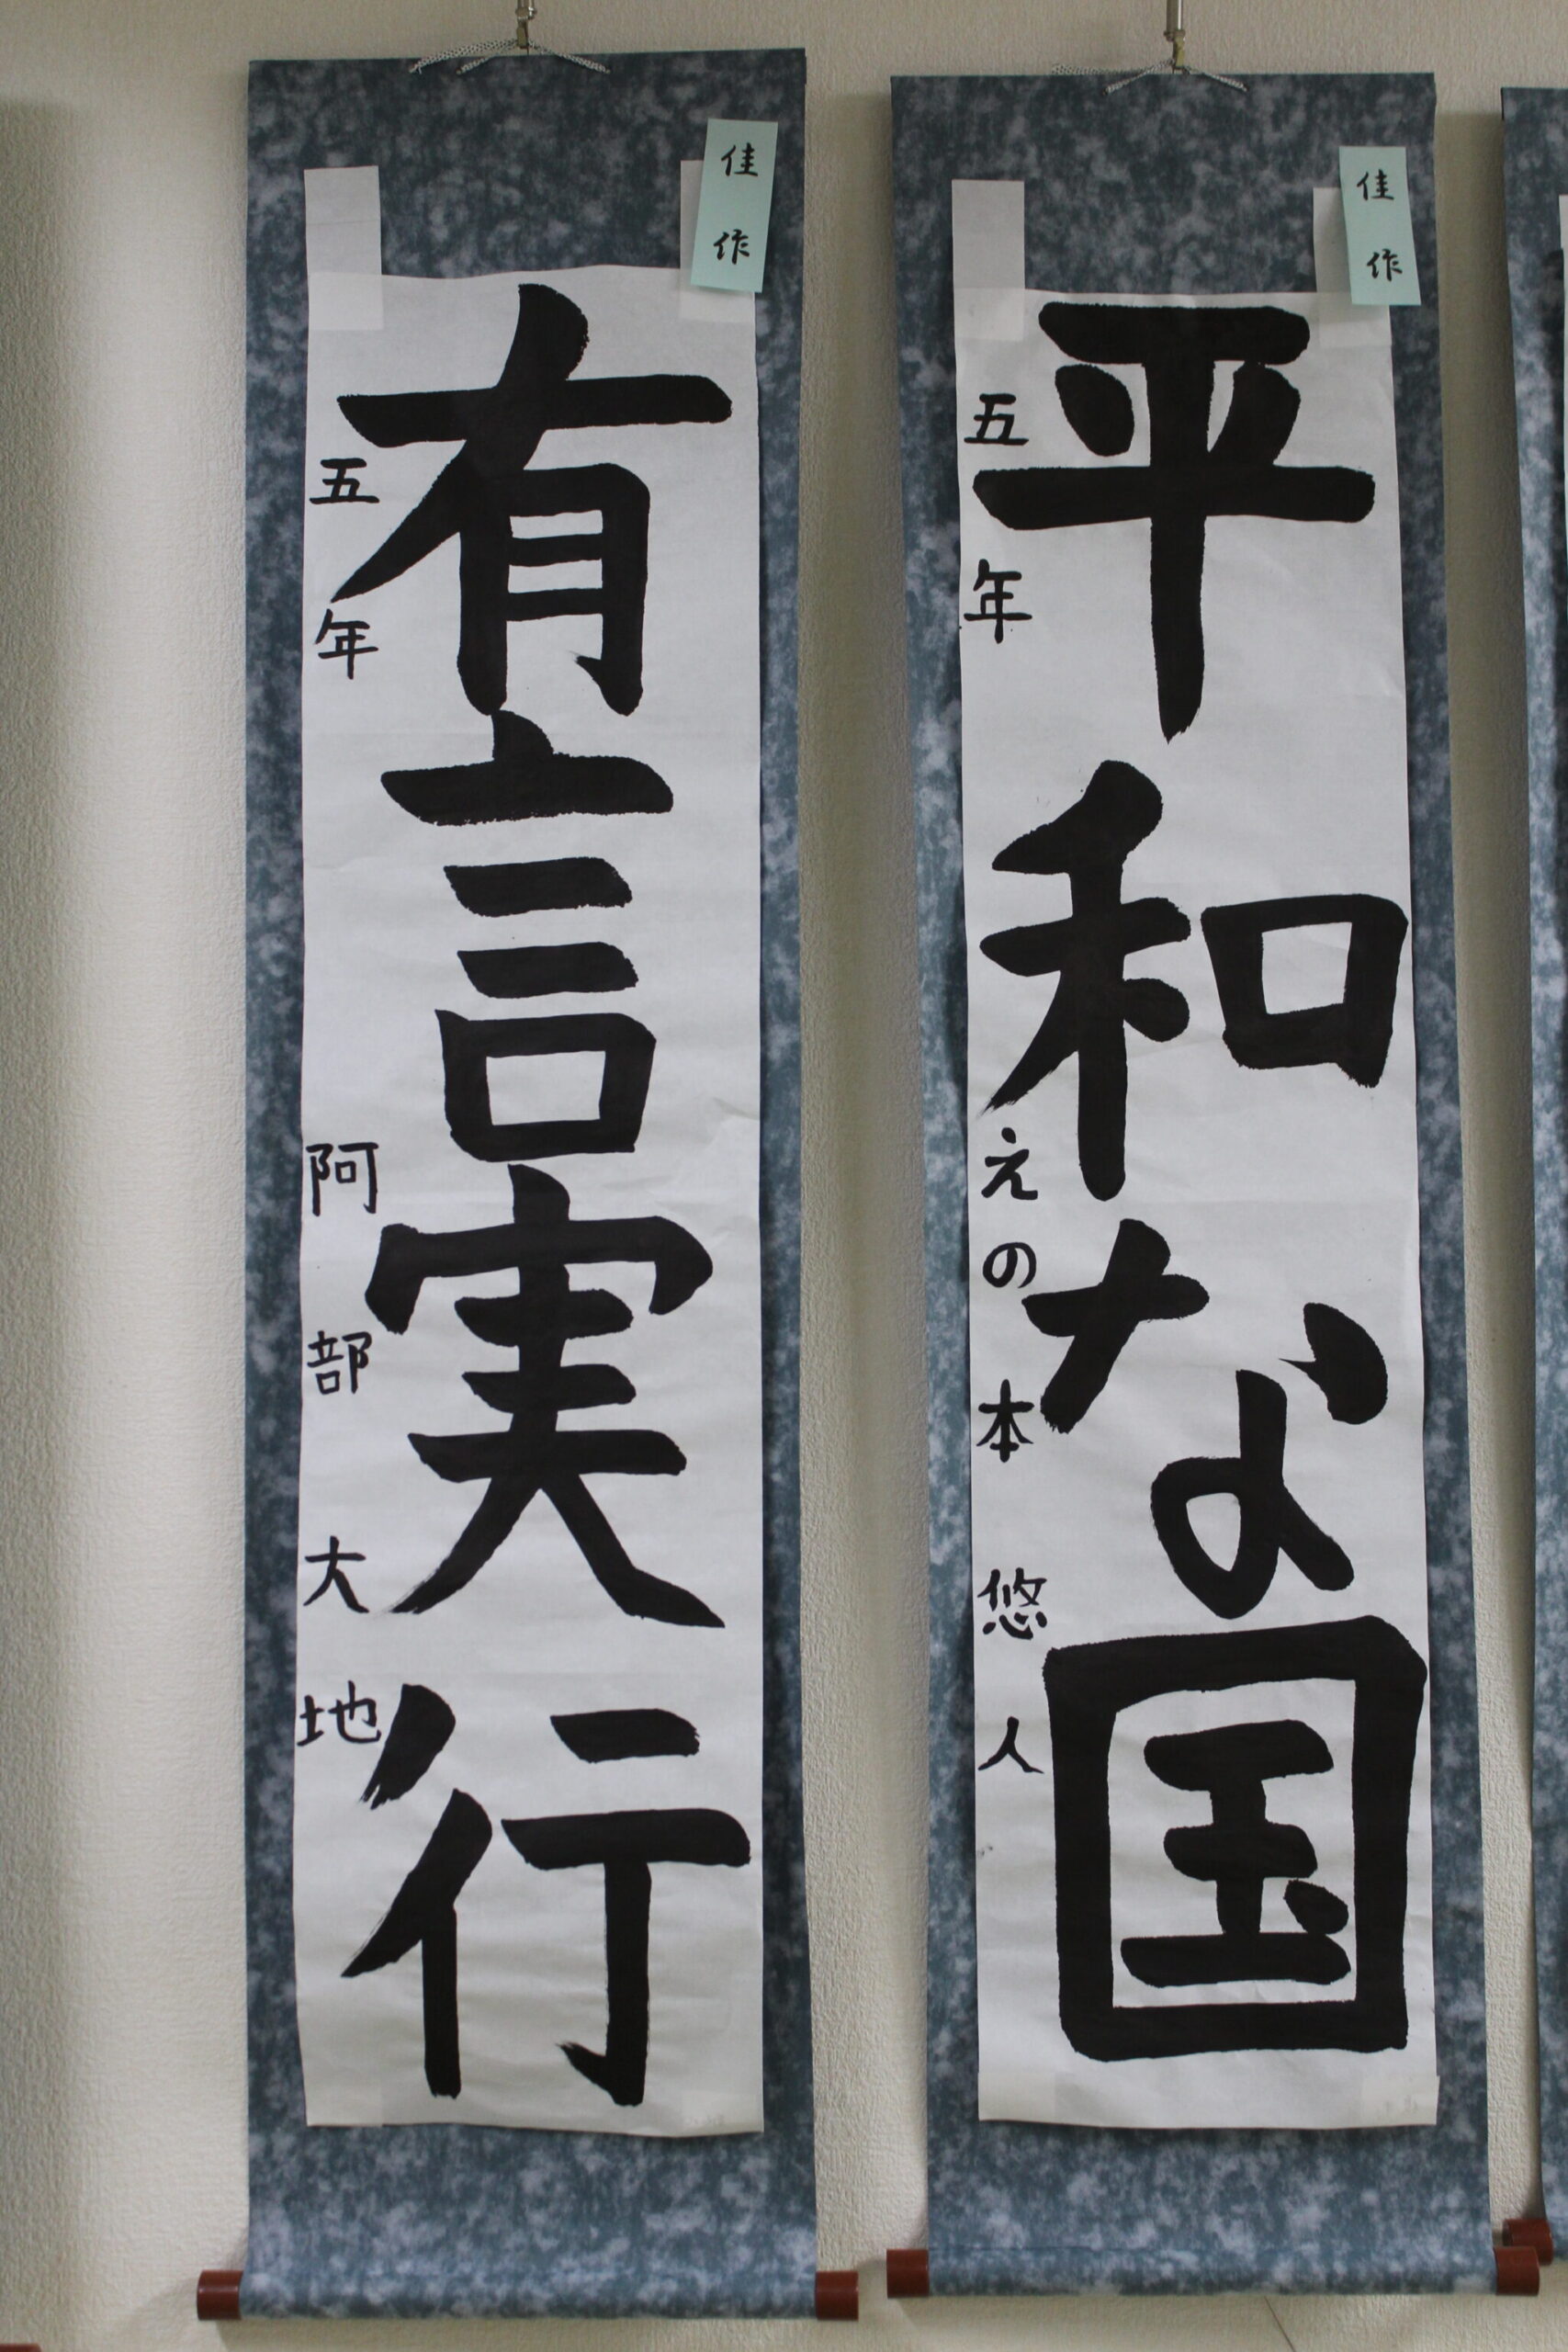 佳作
平和な国
五年 えの本悠人
佳作
有言実行
五年 阿部大地